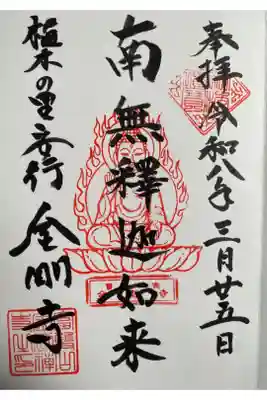 奉拝 令和八年三月廿五日
南無釋迦如来
植木の里 安行 金剛寺